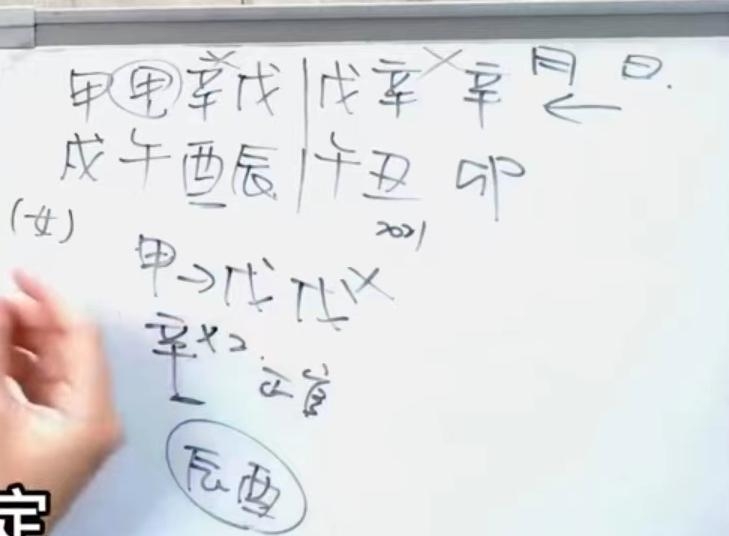 甲甲辛戊|戊辛辛月日.
戌午酉辰|午丑卯
2021
(女)
甲→戊戊×
辛×2.
正官
辰酉
定